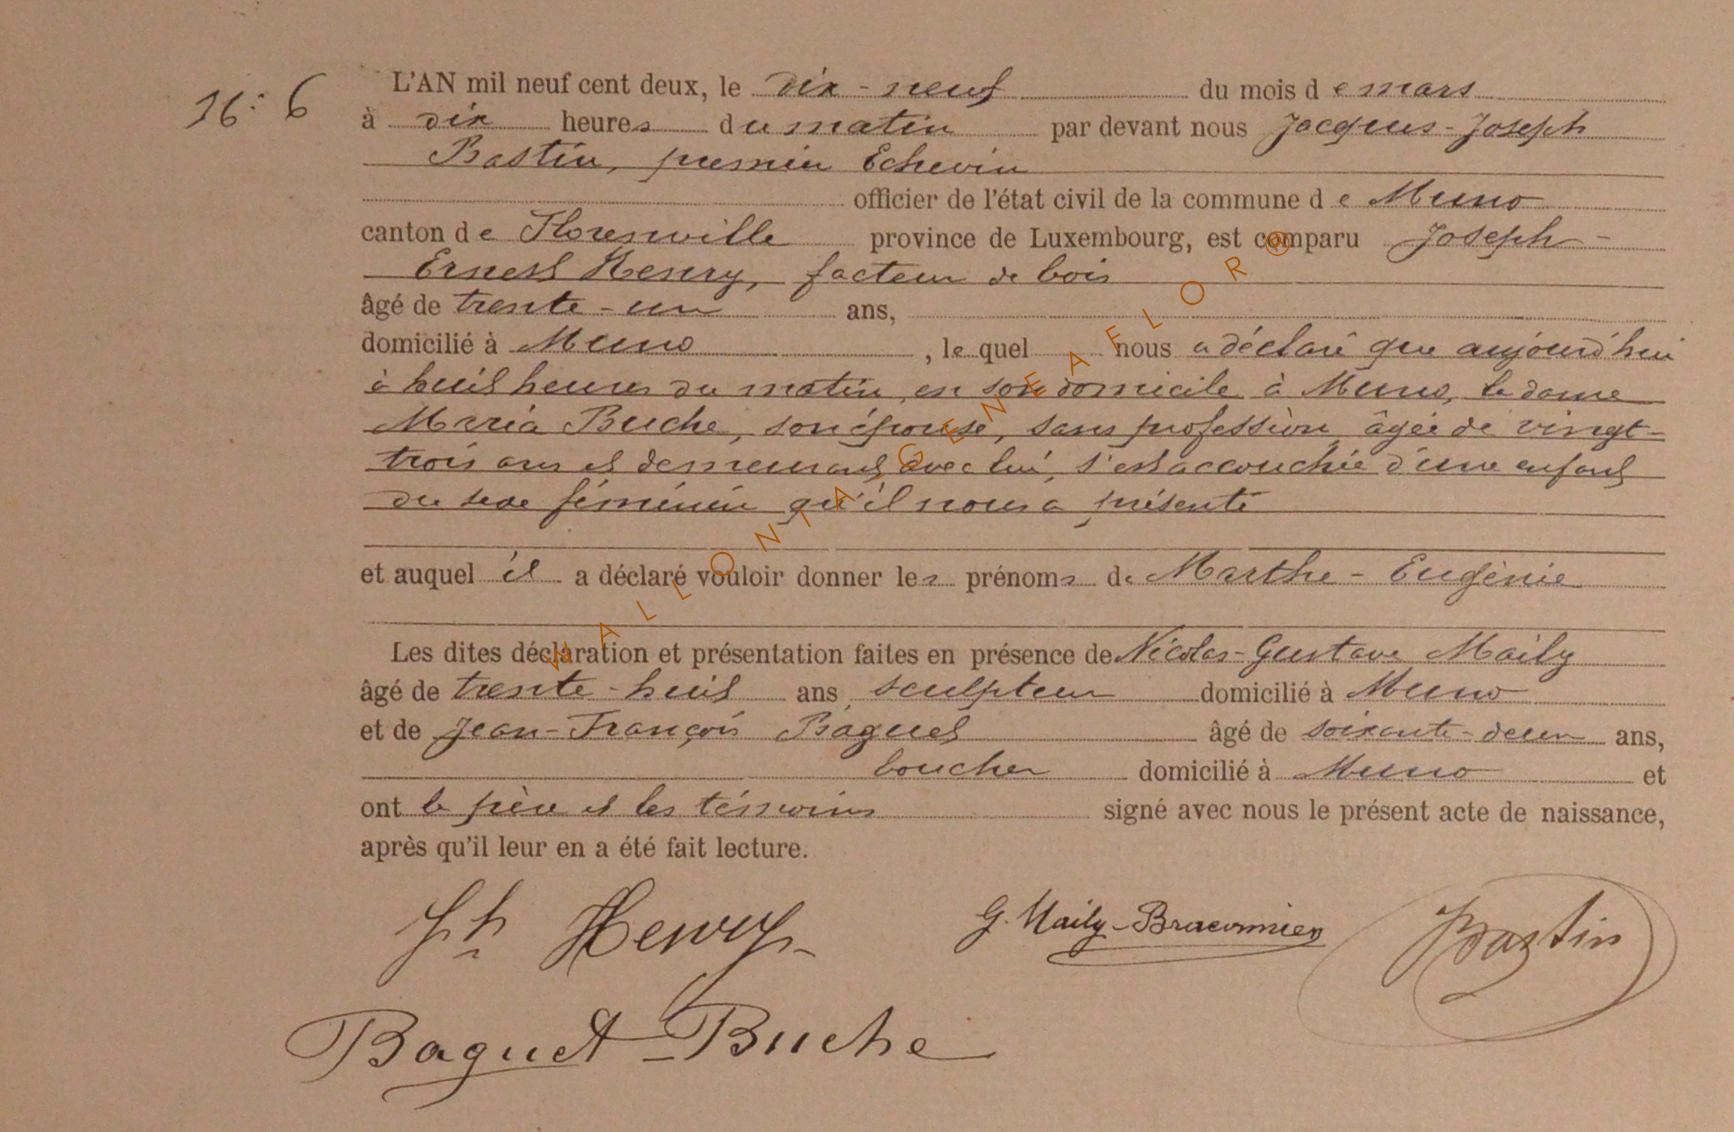 16: 6
L'AN mil neuf cent deux, le dix-neuf du mois de mars
à dix heures du matin par devant nous Jacques-Joseph
Bastin, premier Echevin
officier de l'état civil de la commune de Muno
canton de Florenville province de Luxembourg, est comparu Joseph-
Ernest Henry, facteur de bois
âgé de trente-un ans,
domicilié à Muno, lequel nous a déclaré que aujourd'hui
à huit heures du matin, en son domicile à Muno, la dame
Maria Buche, son épouse, sans profession, âgée de vingt-
trois ans et demeurant avec lui, s'est accouchée d'une enfant
du sexe féminin qu'il nous a présenté
et auquel il a déclaré vouloir donner les prénoms de Marthe-Eugénie
Les dites déclaration et présentation faites en présence de Nicolas-Gustave Maily
âgé de trente-huit ans, sculpteur domicilié à Muno
et de Jean-François Baguet âgé de soixante-deux ans,
boucher domicilié à Muno et
ont le père et les témoins signé avec nous le présent acte de naissance,
après qu'il leur en a été fait lecture.
Jh Henry G. Maily-Braconnier Bastin
Baguet-Buche
WALLONIA GENEAFLOR®